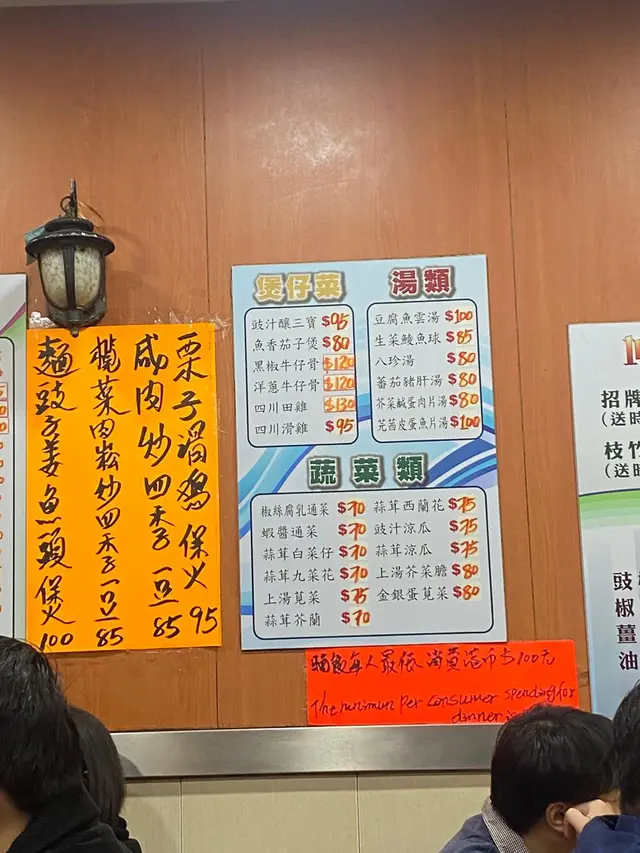 栗子滑鷄保火 95
咸肉炒四季豆 85
欖菜肉崧炒四季豆 85
麵豉子姜魚頭煲 100
煲仔菜
豉汁釀三寶 $95
魚香茄子煲 $80
黑椒牛仔骨 $120
洋蔥牛仔骨 $120
四川田雞 $130
四川滑雞 $95
湯類
豆腐魚雲湯 $100
生菜鯪魚球 $85
八珍湯 $80
蕃茄豬肝湯 $80
芥菜鹹蛋肉片湯 $80
芫茜皮蛋魚片湯 $100
蔬菜類
椒絲腐乳通菜 $70
蝦醬通菜 $70
蒜茸白菜仔 $70
蒜茸九菜花 $70
上湯莧菜 $75
蒜茸芥蘭 $70
蒜茸西蘭花 $75
豉汁涼瓜 $75
蒜茸涼瓜 $75
上湯芥菜膽 $80
金銀蛋莧菜 $80
每人最低消費港币$100元
The minimum per consumer spending for
dinner is
招牌
(送時
枝竹
(送時
豉
椒
薑
油